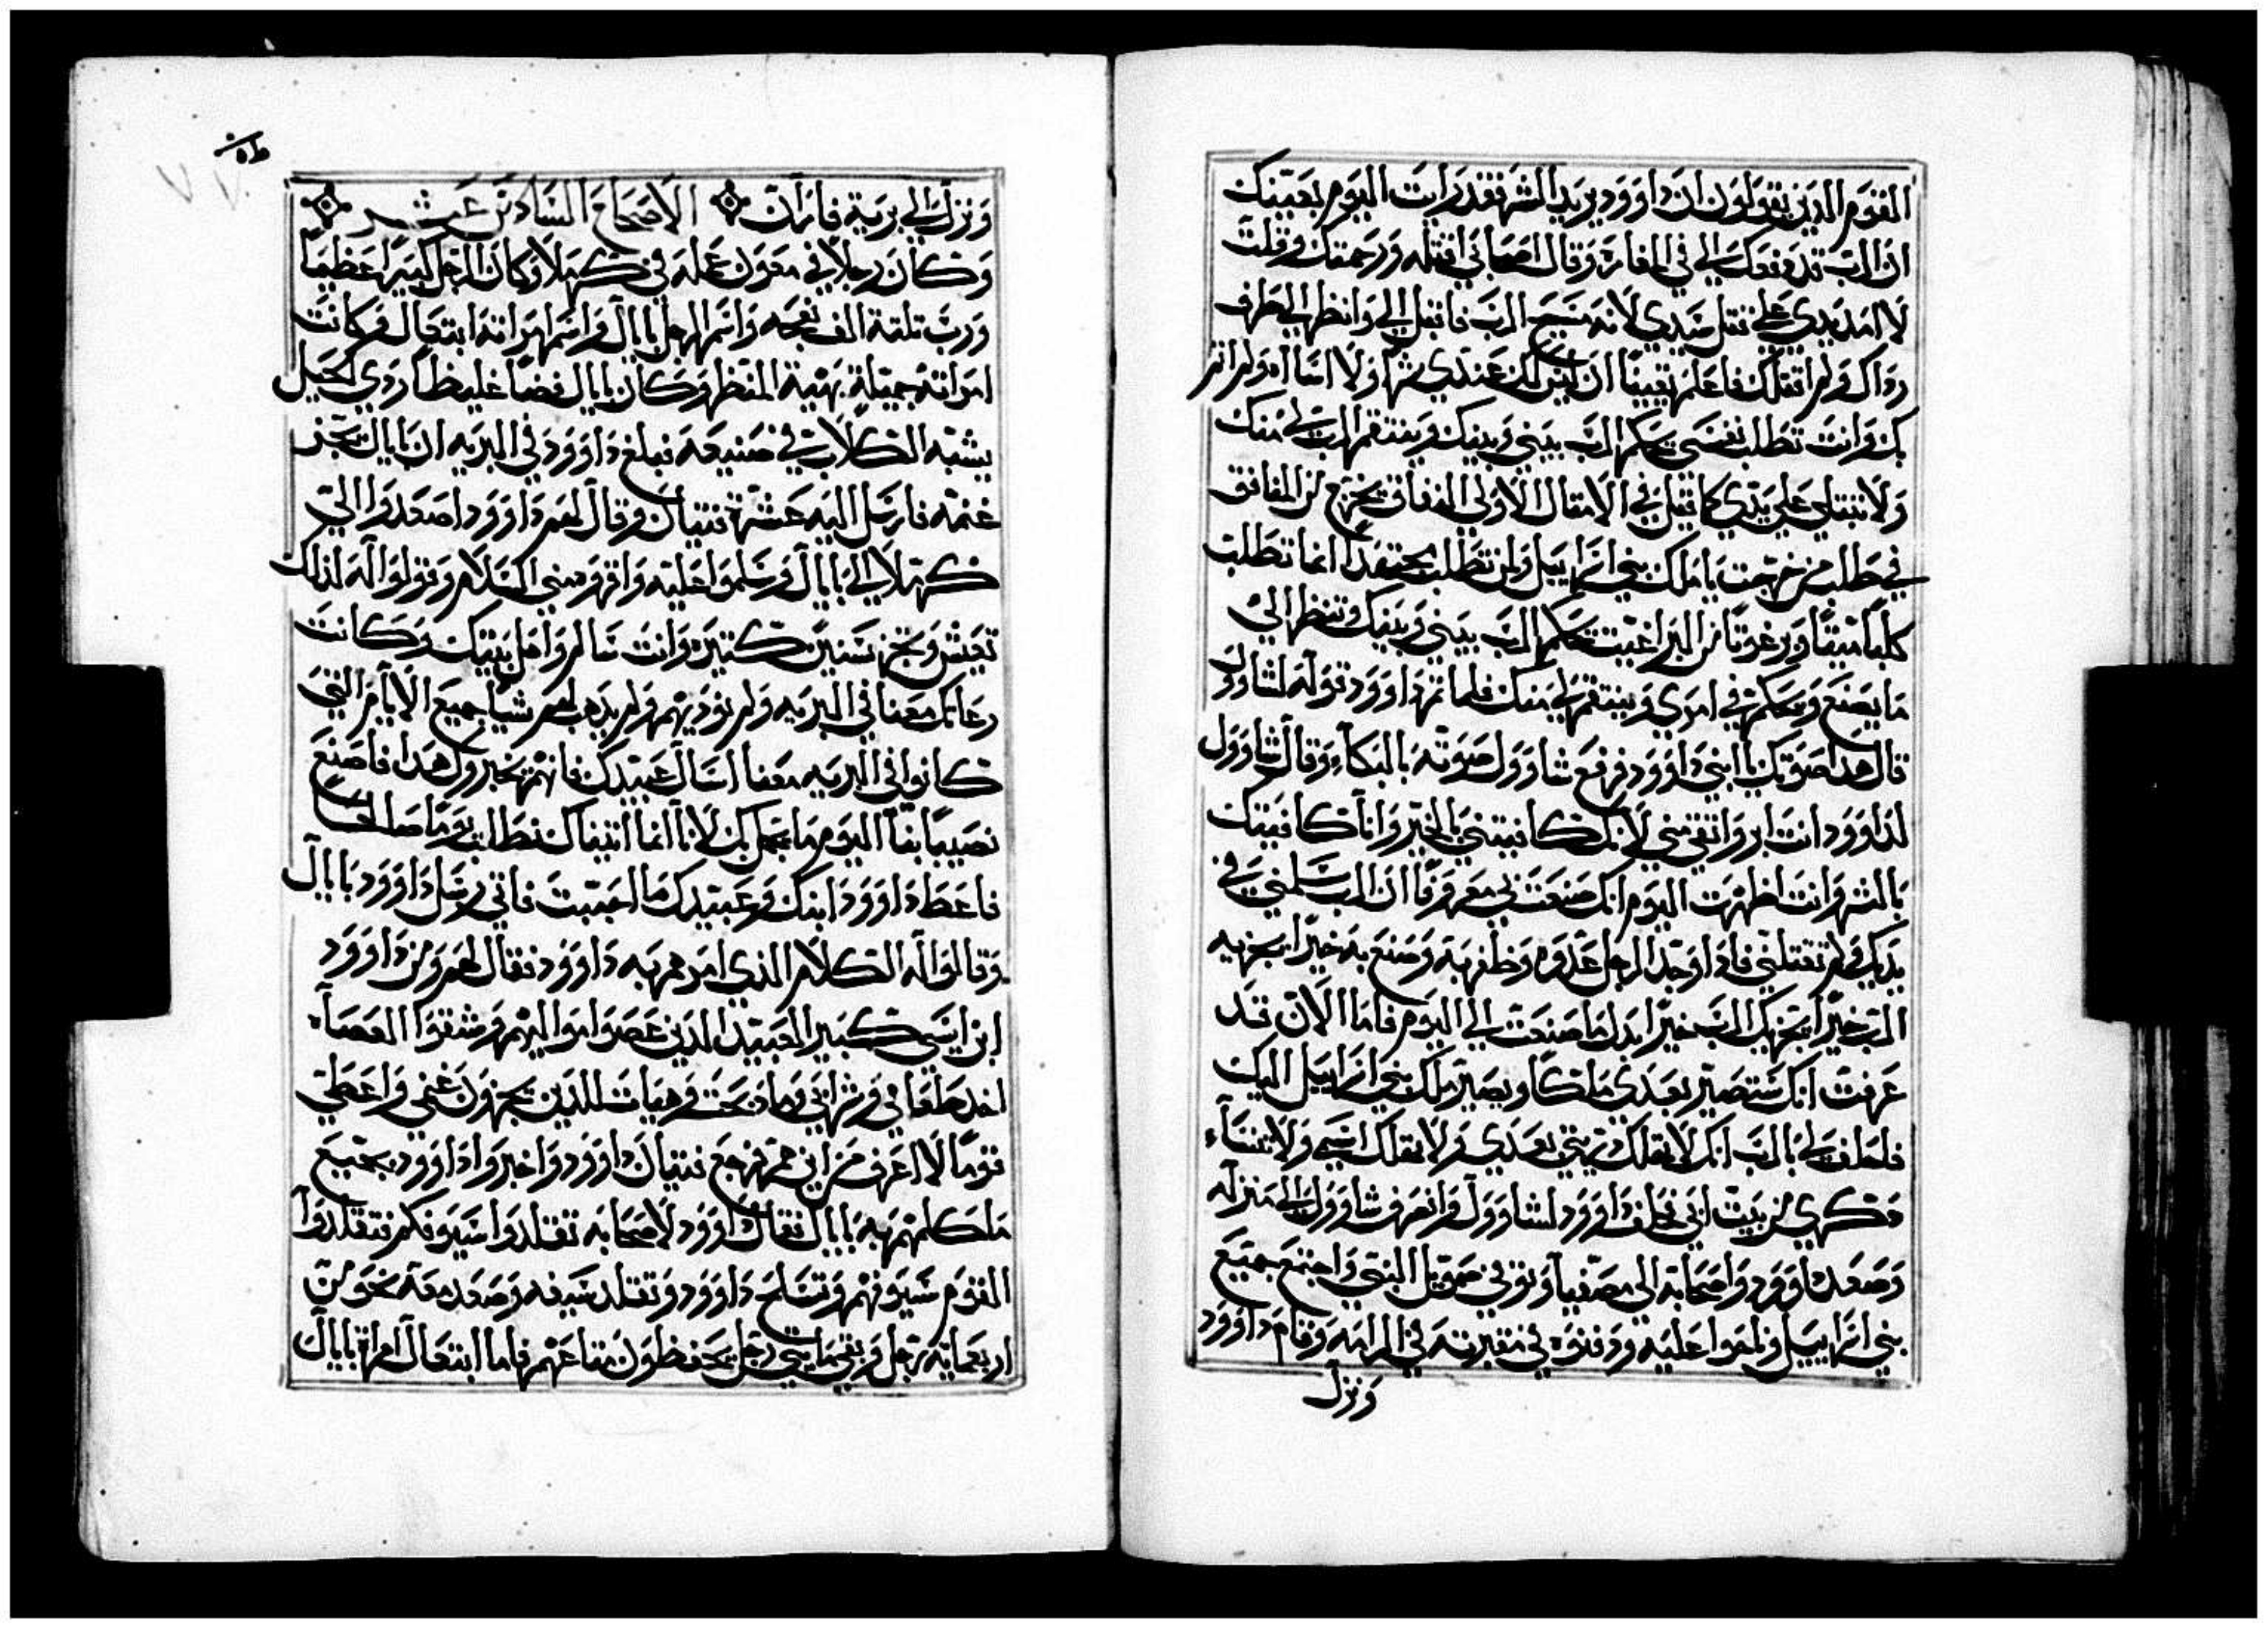 القوم الذين يقولون ان داوود يريد الشر فقد رايت اليوم بعينيك
ان الرب قد دفعك الي في المغاره وقال اصحابي اقتله ورحمتك وقلت
لا امد يدي علي قتل سيدي لانه مسيح الرب فاقبل الي وانظر الي طرف
رداك ولم اقتلك فاعلم يقينا ان ليس لك عندي شرا ولا اساه ولم اثم
بك وانت تطلب نفسي يحكم الرب بيني وبينك وينتقم الرب لي منك
ولا تبتلي علي يدي كما قيل في الامثال الاولي النفاق يخرج من المنافق
في طلب من خرجت يا ملك بني اسراييل ولمن تطلب مجتهدا انما تطلب
كلبا ميتا وبرغوتا من البراغيت يحكم الرب بيني وبينك وينظر الي
ما يصنع ويحكم في امري وينتقم لي منك فلما تم داوود قوله لشاوول
قال هدا صوتك يا ابني داوود فرفع شاوول صوته بالبكاء وقال شاوول
لداوود انت ابر واتقي مني لانك كافيتني بالخير وانا كافيتك
بالشر وانت اظهرت اليوم انك صنعت بي معروفا ان الرب سلمني في
يديك ولم تقتلني فادا وجد الرجل عدوه وظفر به وصنع به خيرا يجزيه
الرب خيرا يجزيك الرب خيرا بدل ما صنعت الي اليوم فاما الان قد
عرفت انك ستصير بعدي ملكا ويصير ملك بني اسراييل اليك
فاحلف لي بالرب انك لا تهلك دريتي بعدي ولا تهلك اسمي ولا تنساء
دكري من بيت ابي فحلف داوود لشاوول وانصرف شاوول الي منزله
وصعد داوود واصحابه الي مصفيا وتوفي صمويل النبي واجتمع جميع
بني اسراييل وناحوا عليه ودفنوه في مقبرته في الرامه وقام داوود
ونزل
ونزل الي برية فاران الاصحاح السادس عشر
وكان رجلا في معون عمله في كرملا وكان الرجل كبيرا عظيما
ورب تلتة الف نعجه واسم الرجل نابال واسم امراته ابتغال وكانت
امراته جميلة بهية المنظر وكان نابال فضا غليظا ردي الحيل
يشبه الكلاب في صنيعه فبلغ داوود في البريه ان نابال يجز
غنمه فارسل اليه عشرة فتيان وقال لهم داوود اصعدوا الي
كرملا الي نابال وسلموا عليه واقروه مني السلام وقولوا له لذلك
تعيش وتجز سنين كتيره وانت سالم واهل بيتك وكانت
رعاتك معنا في البريه ولم نوديهم ولم يدهب لهم شيا جميع الايام التي
كانوا في البريه معنا اسال عبيدك فانهم يخبروك هدا فاصنع
نصيبا بنا اليوم ما يجمل بك لانا انما اتيناك نطلب يوما صالحا
فاعط داوود ابنك وعبيدك ما احببت فاتي رسل داوود نابال
وقالوا له الكلام الذي امرهم به داوود فقال لهم ومن داوود
ابن ايسي كبير العبيد الذين عصوا مواليهم وشقوا العصاء
اخد طعامي وشرابي وما دبحت وهيات للذين يجزون غنمي واعطي
قوما لا اعرف من اين هم فرجع فتيان داوود واخبروا داوود بجميع
ما كلمهم به نابال فقال داوود لاصحابه تقلدوا سيوفكم فتقلدوا
القوم سيوفهم وتسلح داوود وتقلد سيفه وصعد معه نحو من
اربعمايه رجل وبقي مايتي رجل يحفظون متاعهم فاما ابتغال امراة نابال